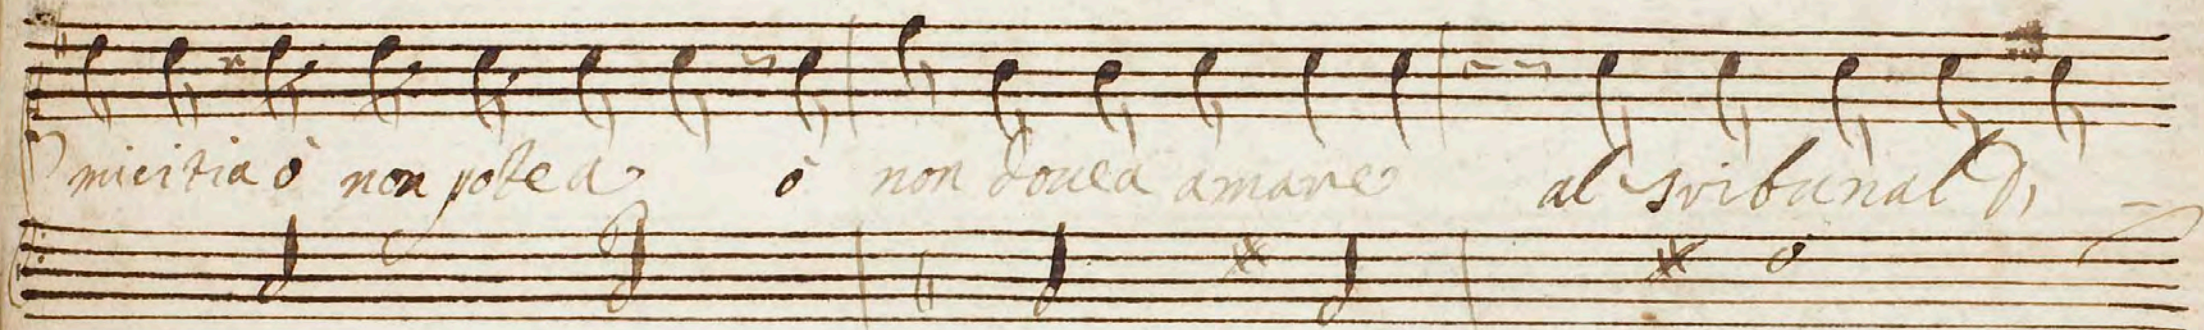 micitia ò non potea ò non douea amare al Tribunal Di